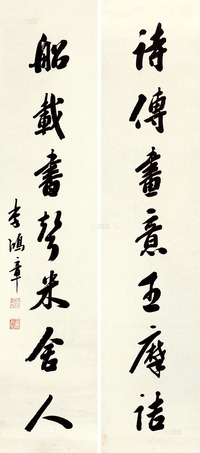 詩傳畫意王摩詰
船載書聲米舍人
李鴻章